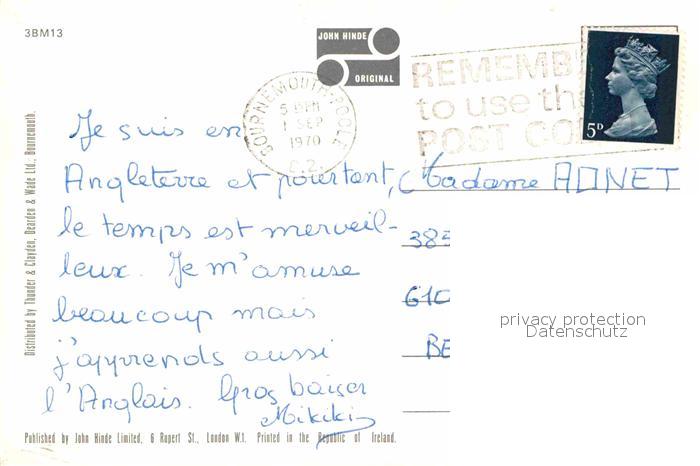 3BM13
JOHN HINDE
ORIGINAL
BOURNEMOUTH-POOLE
5 PM
1 SEP
1970
REMEMB
to use the
POST CO
5D
Je suis en
Angleterre et pourtant,
le temps est merveil-
leux. Je m'amuse
beaucoup mais
j'apprends aussi
l'Anglais. Gros baiser
Mikiki
Madame ADNET
385
610
BE
privacy protection
Datenschutz
Distributed by Thunder & Clayden, Dearden & Wade Ltd., Bournemouth.
Published by John Hinde Limited, 6 Rupert St., London W.1. Printed in the Republic of Ireland.